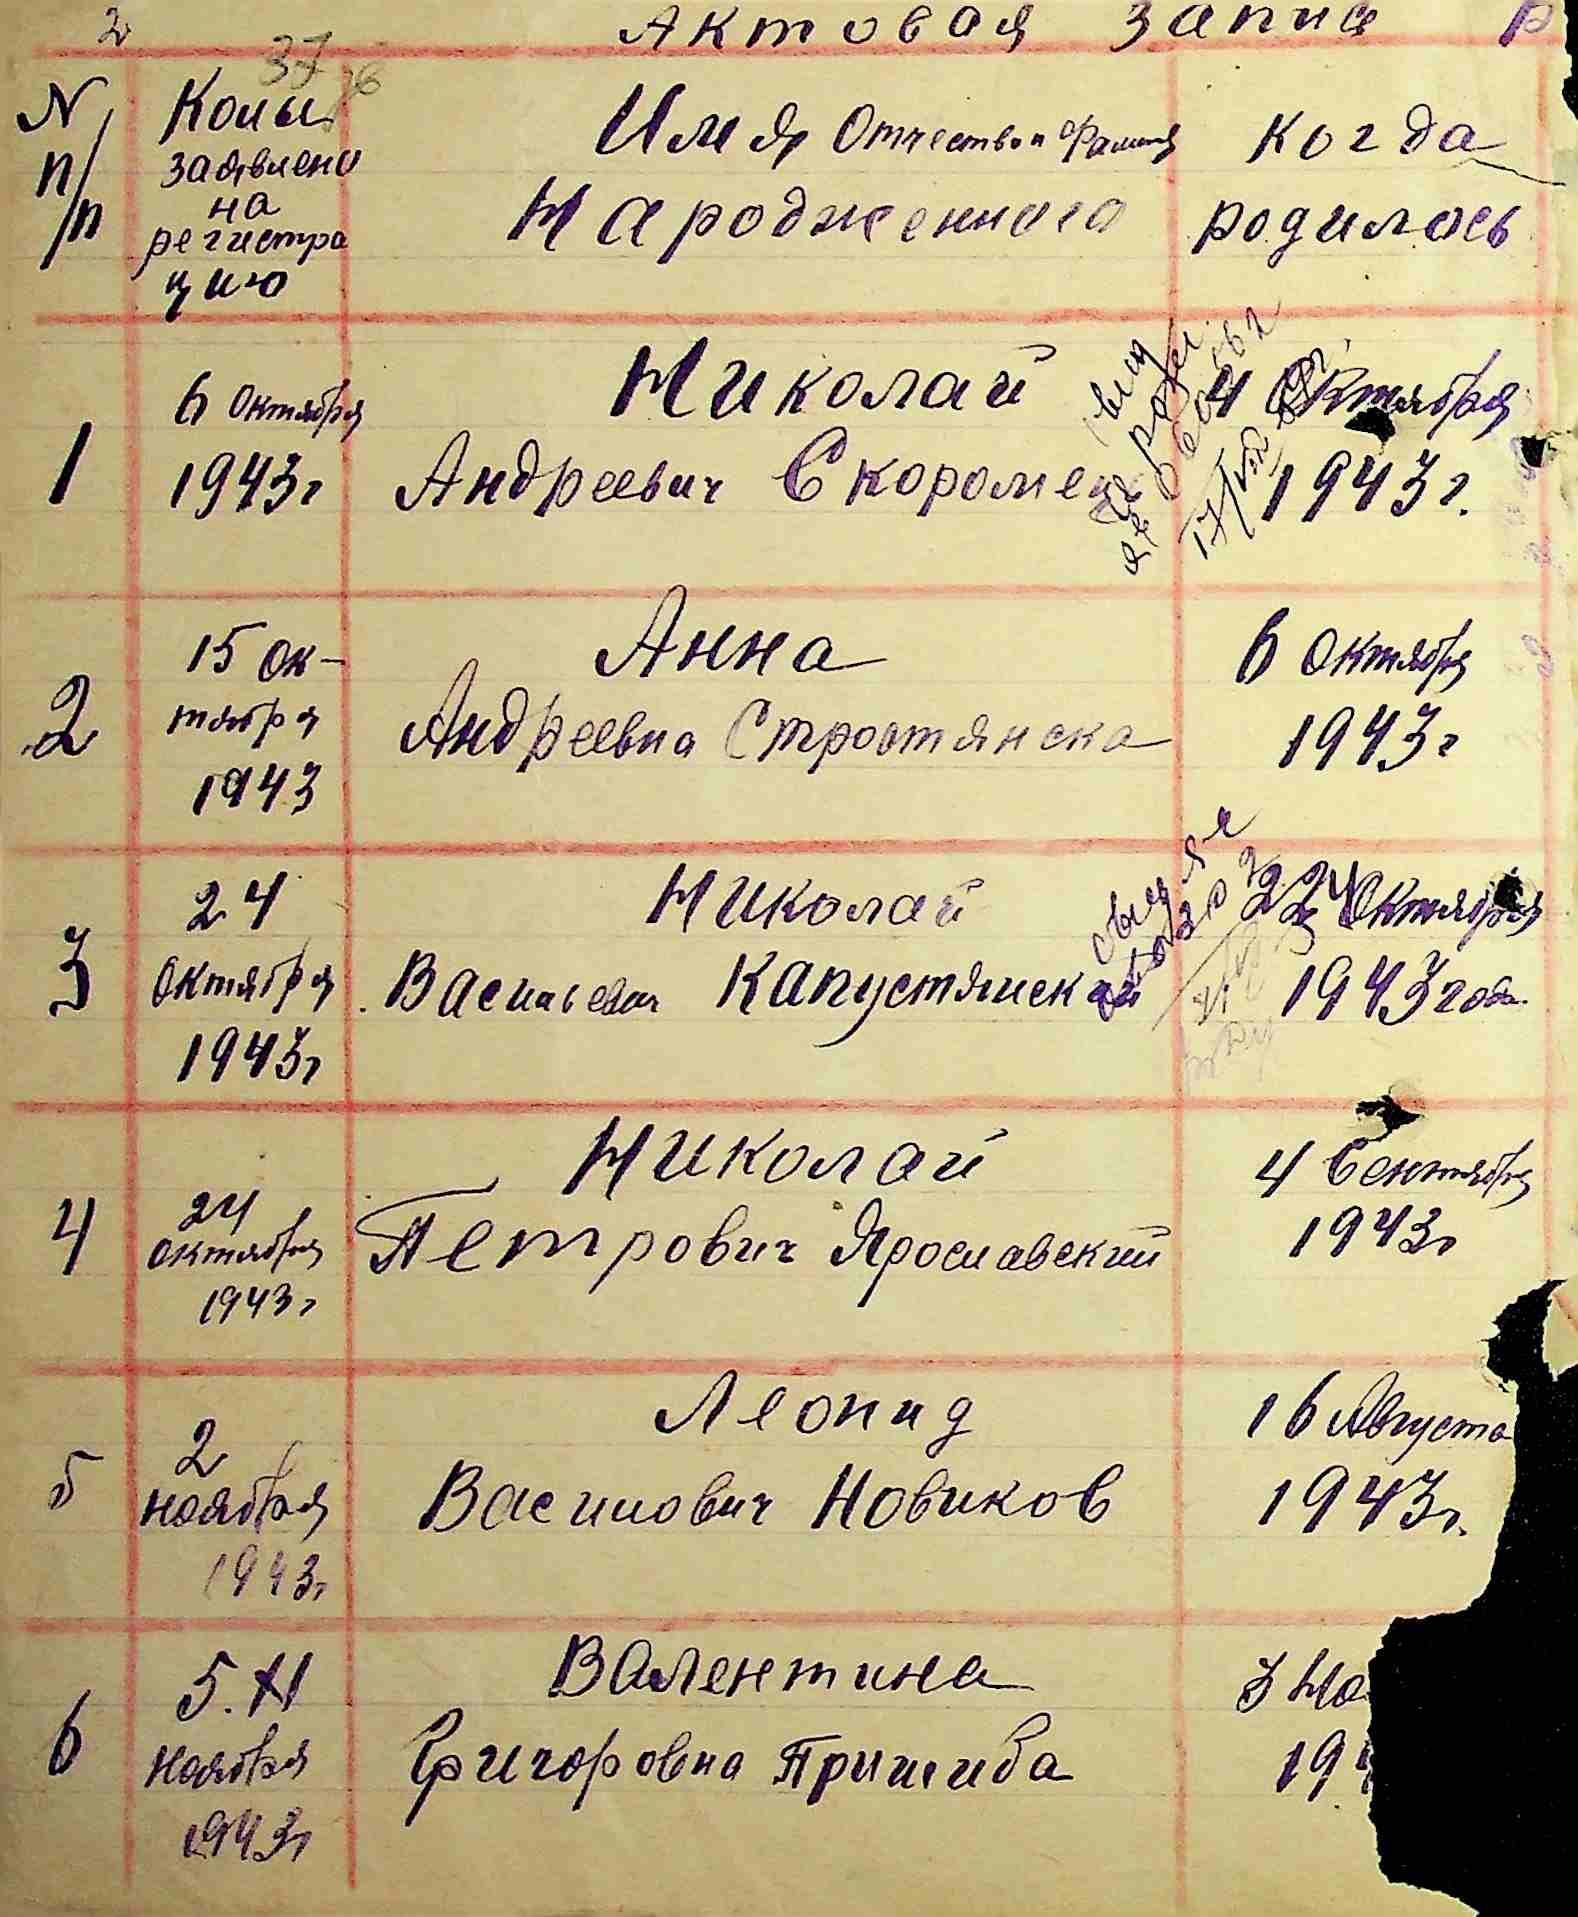 2 Актовая запись р
N п/п
Коли заявлено на регистрацию
Имя Отчество и Фамилия
Народженного
когда
родилось
1
6 Октября
1943г
Николай
Андреевич Скоромец
4 Октября
1943г.
2
15 ок-
тября
1943
Анна
Андреевна Строотянска
6 Октября
1943г
3
24
Октября
1943г
Николай
Васильевич Капустянский
22 Октября
1943 года.
4
24
октября
1943г
Николай
Петрович Ярославский
4 Сентября
1943г
5
2
ноября
1943г
Леонид
Василович Новиков
16 Августа
1943г.
6
5.XI
ноября
1943г
Валентина
Григоровна Пришиба
3 Но
19